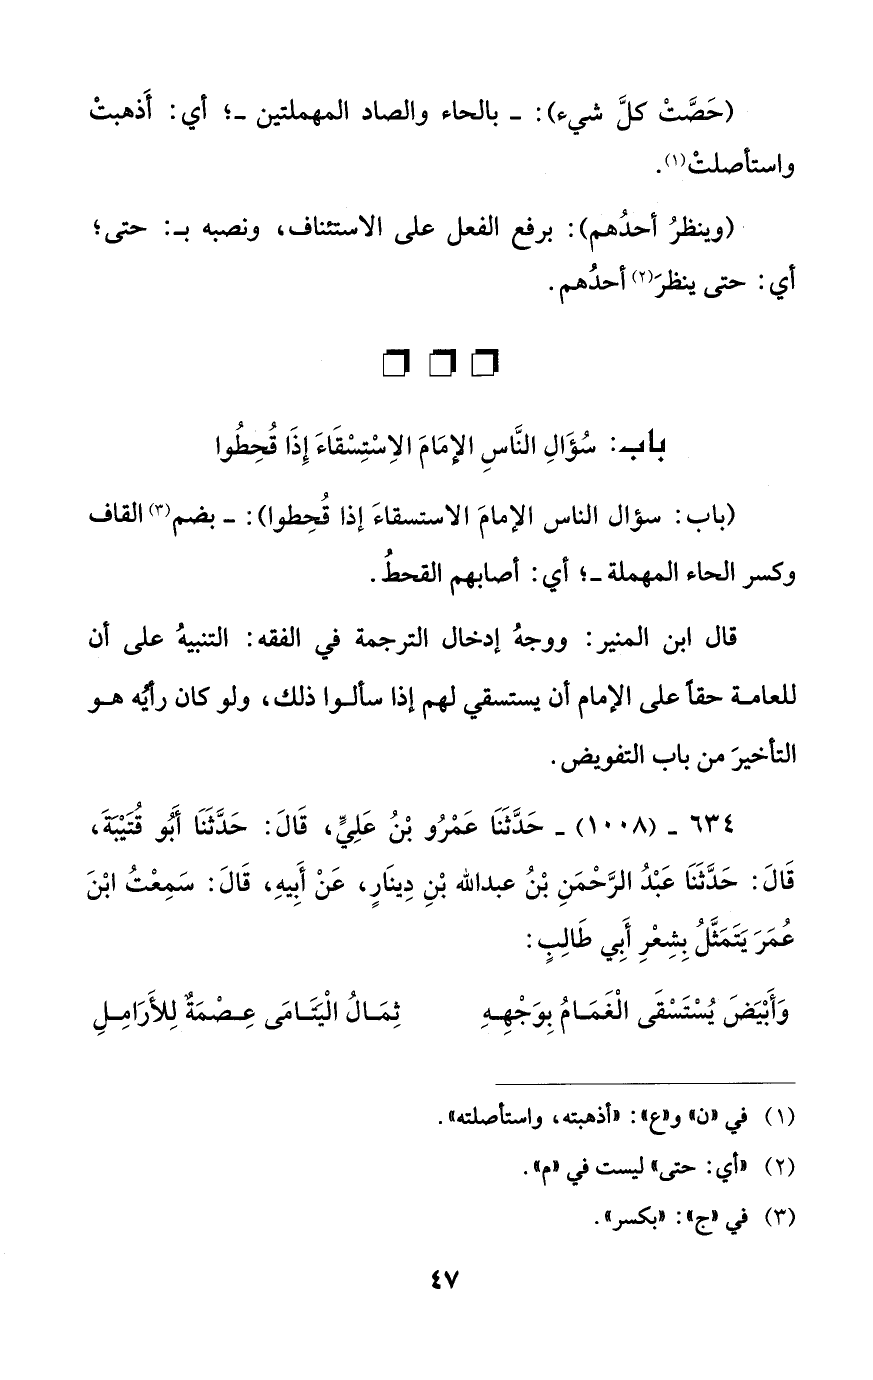 (حَصَّتْ كلَّ شيء): ـ بالحاء والصاد المهملتين ـ؛ أي: أَذهبتْ
واستأصلتْ(١).
(وينظرُ أحدُهم): برفع الفعل على الاستئناف، ونصبه بـ: حتى؛
أي: حتى ينظرَ(٢) أحدُهم.
باب: سُؤَالِ النَّاسِ الإمَامَ الاِسْتِسْقَاءَ إِذَا قُحِطُوا
(باب: سؤال الناس الإمامَ الاستسقاءَ إذا قُحِطوا): ـ بضم(٣) القاف
وكسر الحاء المهملة ـ؛ أي: أصابهم القحطُ.
قال ابن المنير: ووجهُ إدخال الترجمة في الفقه: التنبيهُ على أن
للعامـة حقاً على الإمام أن يستسقي لهم إذا سألـوا ذلك، ولو كان رأيُه هـو
التأخيرَ من باب التفويض.
٦٣٤ ـ (١٠٠٨) ـ حَدَّثَنَا عَمْرُو بْنُ عَلِيٍّ، قَالَ: حَدَّثَنَا أَبُو قُتَيْبَةَ،
قَالَ: حَدَّثَنَا عَبْدُ الرَّحْمَنِ بْنُ عبدالله بْنِ دِينَارٍ، عَنْ أَبِيهِ، قَالَ: سَمِعْتُ ابْنَ
عُمَرَ يَتَمَثَّلُ بِشِعْرِ أَبِي طَالِبٍ:
وَأَبْيَضَ يُسْتَسْقَى الْغَمَـامُ بِوَجْهِـهِ ثِمَـالُ الْيَتَـامَى عِـصْمَةٌ لِلأَرَامِـلِ
(١) في «ن» و«ع»: «أذهبته، واستأصلته».
(٢) «أي: حتى» ليست في «م».
(٣) في «ج»: «بكسر».
٤٧